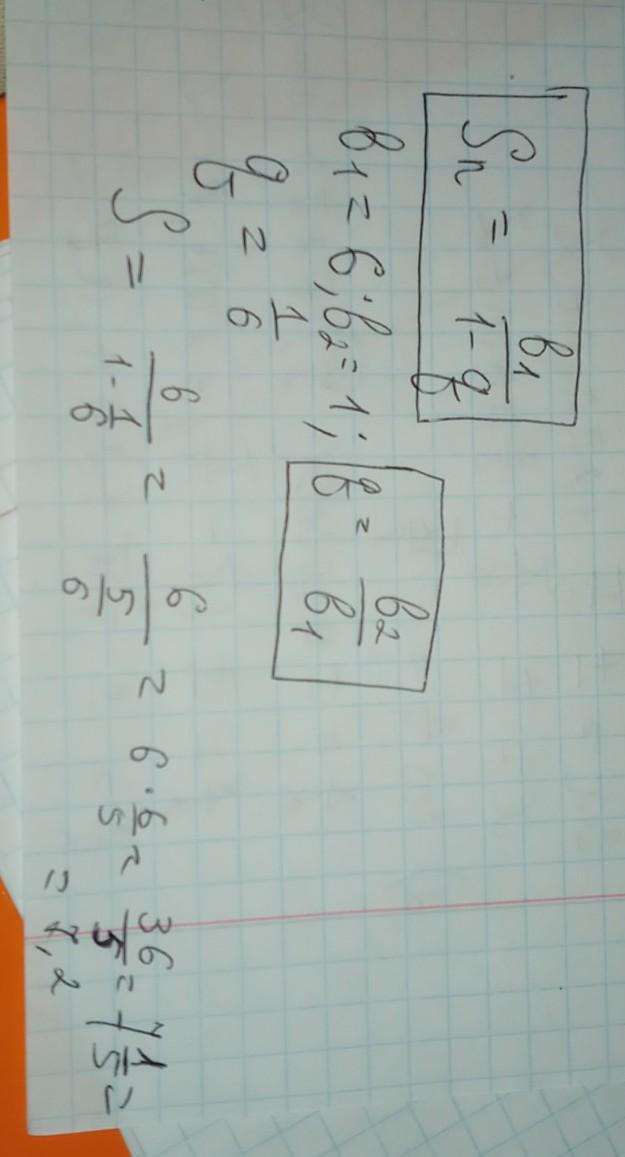 Sn = b1/(1-q)
b1 = 6; b2 = 1; q = b2/b1
q = 1/6
S = 6/(1-1/6) = 6/(5/6) = 6·6/5 = 36/5 = 7 1/5 =
= 7,2